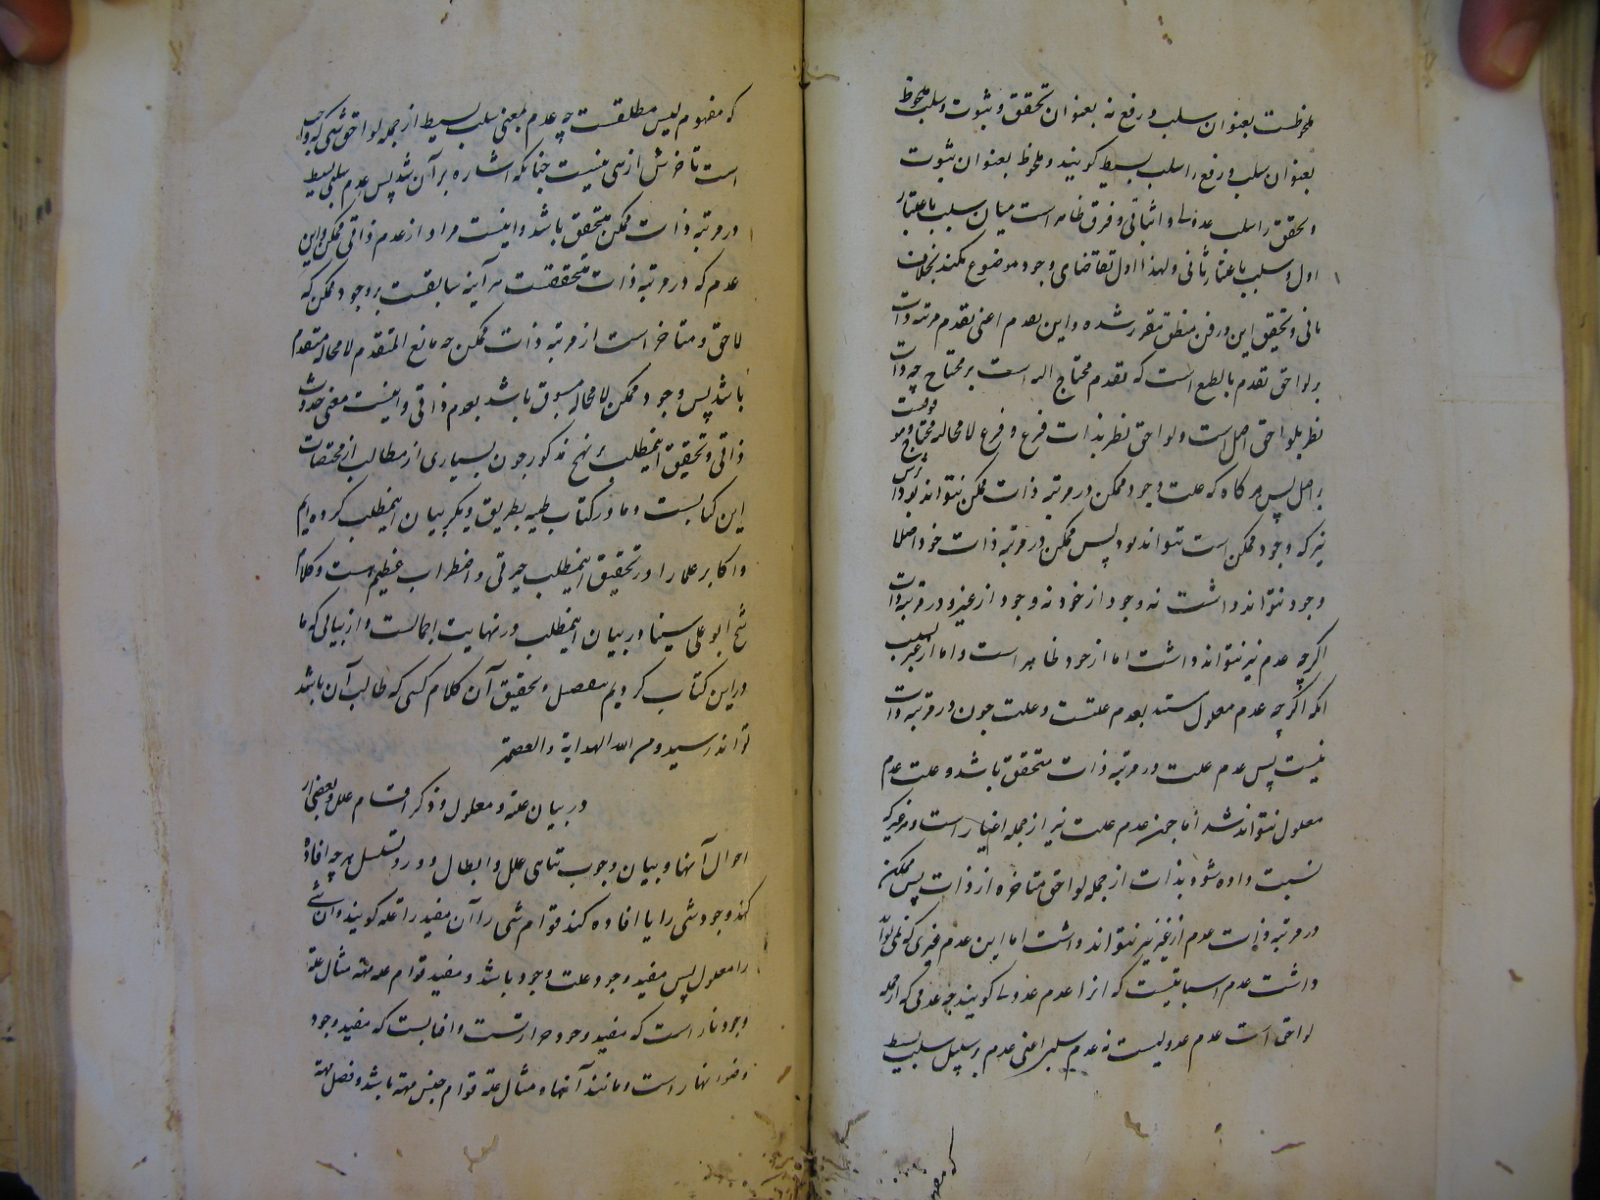 ملحوظست بعنوان سلب و رفع نه بعنوان تحقق و ثبوت و سلب ملحوظ
بعنوان سلب و رفع را سلب بسیط کویند و ملحوظ بعنوان ثبوت
و تحقق را سلب عدولی و اثباتی و فرق ظاهر است میان سلب باعتبار
اول و سلب باعتبار ثانی و لهذا اول تقاضای وجود موضوع نکند بخلاف
ثانی و تحقیق این در فن منطق مقرر شده و این تقدم اعنی تقدم مرتبه ذات
بر لواحق تقدم بالطبع است که تقدم محتاج الیه است بر محتاج چه ذات
نظر بلواحق اصل است و لواحق نظر بذات فرع و فرع لا محاله محتاج و موقوفست
بر اصل پس هرکاه که علت وجود ممکن در مرتبه ذات ممکن نتواند بود اثرش
نیز که وجود ممکن است نتواند بود پس ممکن در مرتبه ذات خود اصلا
وجود نتواند داشت نه وجود از خود نه وجود از غیر و در مرتبه ذات
اکرچه عدم نیز نتواند داشت اما از خود ظاهر است و اما از غیر بسبب
انکه اکرچه عدم معلول مستند بعدم علتست و علت چون در مرتبه ذات
نیست پس عدم علت در مرتبه ذات متحقق باشد و علت عدم
معلول نتواند شد اما چون عدم علت نیز از جمله اغیار است و هرغیر که
نسبت داده شود بذات از جمله لواحق متاخره از ذات پس ممکن
در مرتبه ذات عدم از غیر نیز نتواند داشت اما این عدم غیری که نمی تواند
داشت عدم اثباتیست که انرا عدم عدولی کویند چه عدمی که از جمله
لواحق است عدم عدولیست نه عدم سلبی اعنی عدم بر سبیل سلب بسیط
که مفهوم لیس مطلقست چه عدم بمعنی سلب بسیط از جمله لواحق شی که واجب
است تاخرش از شی نیست چنانکه اشاره بر آن شد پس عدم سلبی بسیط
در مرتبه ذات ممکن متحقق باشد و اینست مراد از عدم ذاتی ممکن و این
عدم که در مرتبه ذات متحققست هر آینه سابقست بر وجود ممکن که
لاحق و متاخر است از مرتبه ذات ممکن چه مامع المتقدم لا محاله متقدم
باشد پس وجود ممکن لا محاله مسبوق باشد بعدم ذاتی و اینست معنی حدوث
ذاتی و تحقیق اینمطلب بنهج مذکور چون بسیاری از مطالب از مختصات
این کتابست و ما در کتاب طیبه بطریق دیکر بیان اینمطلب کرده ایم
و اکابر علما را در تحقیق اینمطلب حیرتی و اضطراب عظیم هست و کلام
شیخ ابو علی سینا در بیان اینمطلب در نهایت اجمالست و از بیانی که ما
در این کتاب کردیم تفصیل و تحقیق آن کلام کسی که طالب آن باشد
تواند رسید و من الله الهدایة و العصمة
در بیان علة و معلول و ذکر اقسام علل و بعضی از
احوال آنها و بیان وجوب تناهی علل و ابطال دور و تسلسل هرچه افاده
کند وجود شی را یا افاده کند قوام شی را آن مفید را علة کویند و ان شی
را معلول پس مفید وجود علت وجود باشد و مفید قوام علة مهیة مثال علة
وجود نار است که مفید وجود حرارتست و افتابست که مفید وجود
وضوء نهار است و مانند آنها و مثال علة قوام جنس مهیة باشد و فصل مهیة
که مفهوم